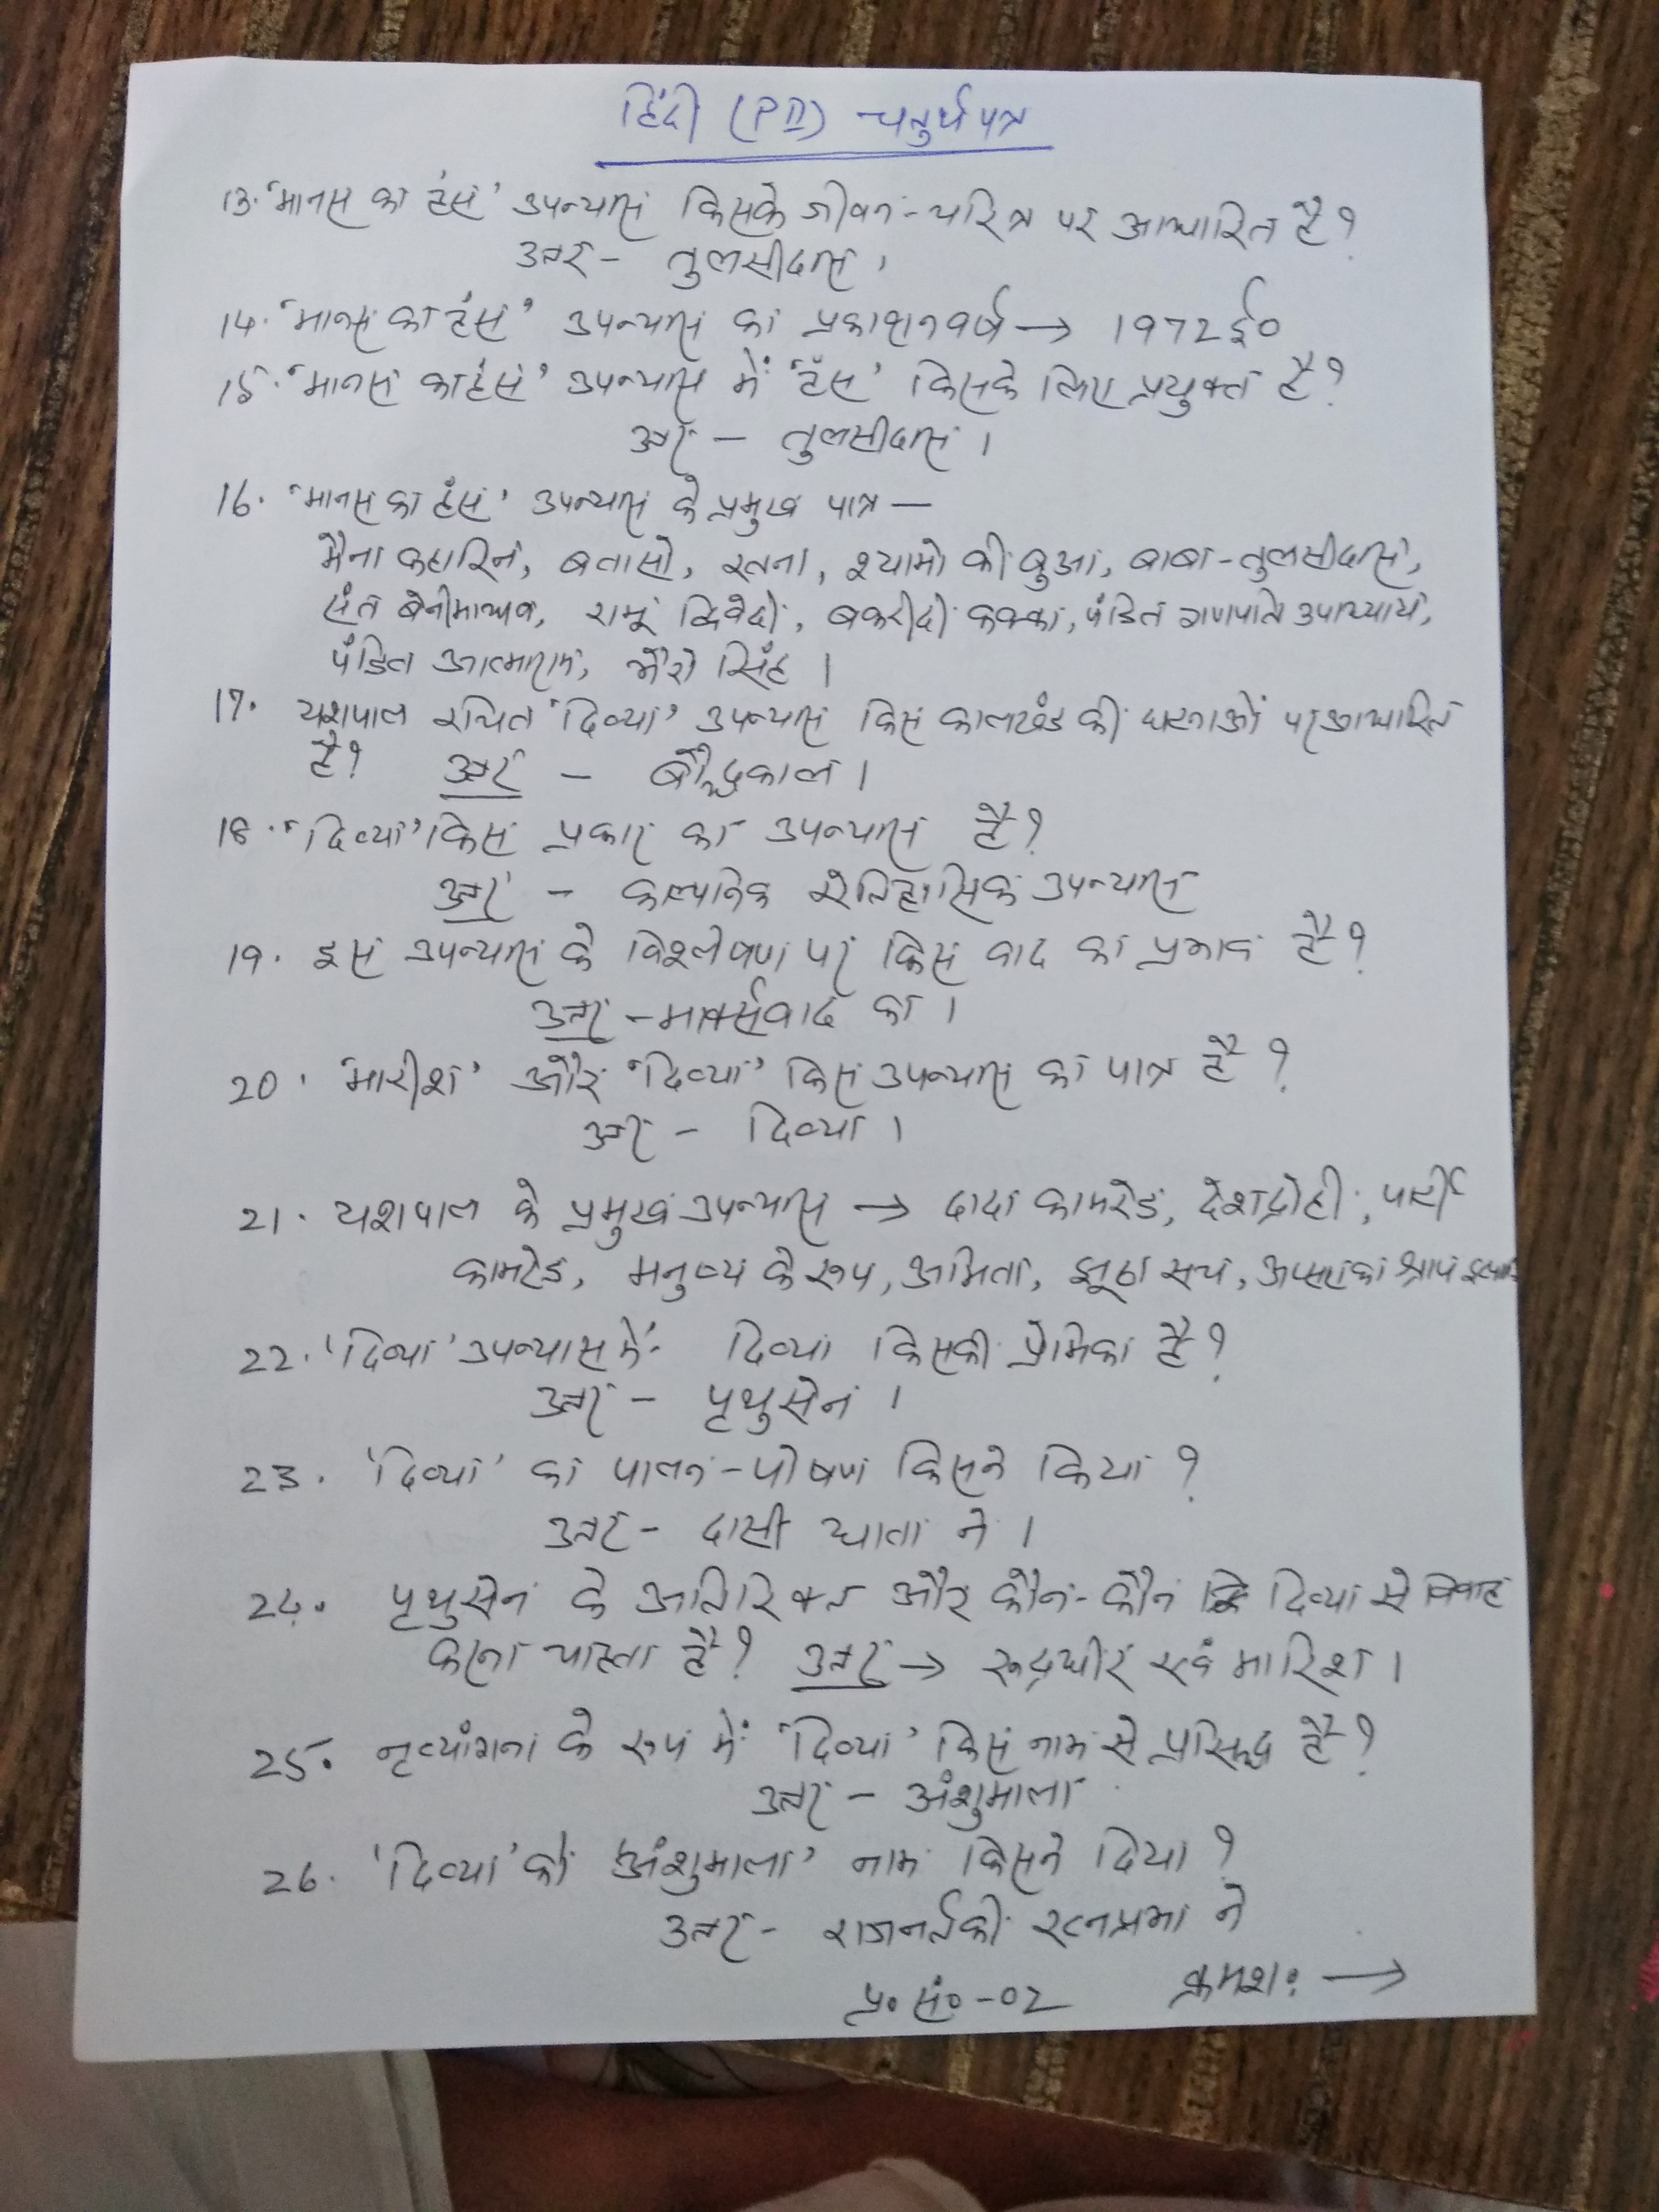 हिंदी (PII) चतुर्थ पत्र
13. 'मानस का हंस' उपन्यास किसके जीवन-चरित्र पर आधारित है?
उत्तर - तुलसीदास।
14. 'मानस का हंस' उपन्यास का प्रकाशन वर्ष → 1972 ई०
15. 'मानस का हंस' उपन्यास में 'हंस' किसके लिए प्रयुक्त है?
उत्तर - तुलसीदास।
16. 'मानस का हंस' उपन्यास के प्रमुख पात्र —
मैना कहारिन, बतासो, रतना, श्यामो की बुआ, बाबा-तुलसीदास,
संत बेनीमाधव, रामू द्विवेदी, बकरीदी कक्का, पंडित गणपति उपाध्याय,
पंडित आत्माराम, भैरो सिंह।
17. यशपाल रचित 'दिव्या' उपन्यास किस कालखंड की घटनाओं पर आधारित
है? उत्तर - बौद्धकाल।
18. 'दिव्या' किस प्रकार का उपन्यास है?
उत्तर - काल्पनिक ऐतिहासिक उपन्यास
19. इस उपन्यास के विश्लेषण पर किस वाद का प्रभाव है?
उत्तर - मार्क्सवाद का।
20. 'मारीश' और 'दिव्या' किस उपन्यास का पात्र है?
उत्तर - दिव्या।
21. यशपाल के प्रमुख उपन्यास → दादा कामरेड, देशद्रोही, पार्टी
कामरेड, मनुष्य के रूप, अमिता, झूठा सच, अप्सरा का श्राप इत्यादि
22. 'दिव्या' उपन्यास में दिव्या किसकी प्रेमिका है?
उत्तर - पृथुसेन।
23. 'दिव्या' का पालन-पोषण किसने किया?
उत्तर - दासी धाता ने।
24. पृथुसेन के अतिरिक्त और कौन-कौन दिव्या से विवाह
करना चाहता है? उत्तर → रूद्रधीर एवं मारिश।
25. नृत्यांगना के रूप में 'दिव्या' किस नाम से प्रसिद्ध है?
उत्तर - अंशुमाला
26. 'दिव्या' को 'अंशुमाला' नाम किसने दिया?
उत्तर - राजनर्तकी रत्नप्रभा ने
पृ० सं० - 02 क्रमशः →